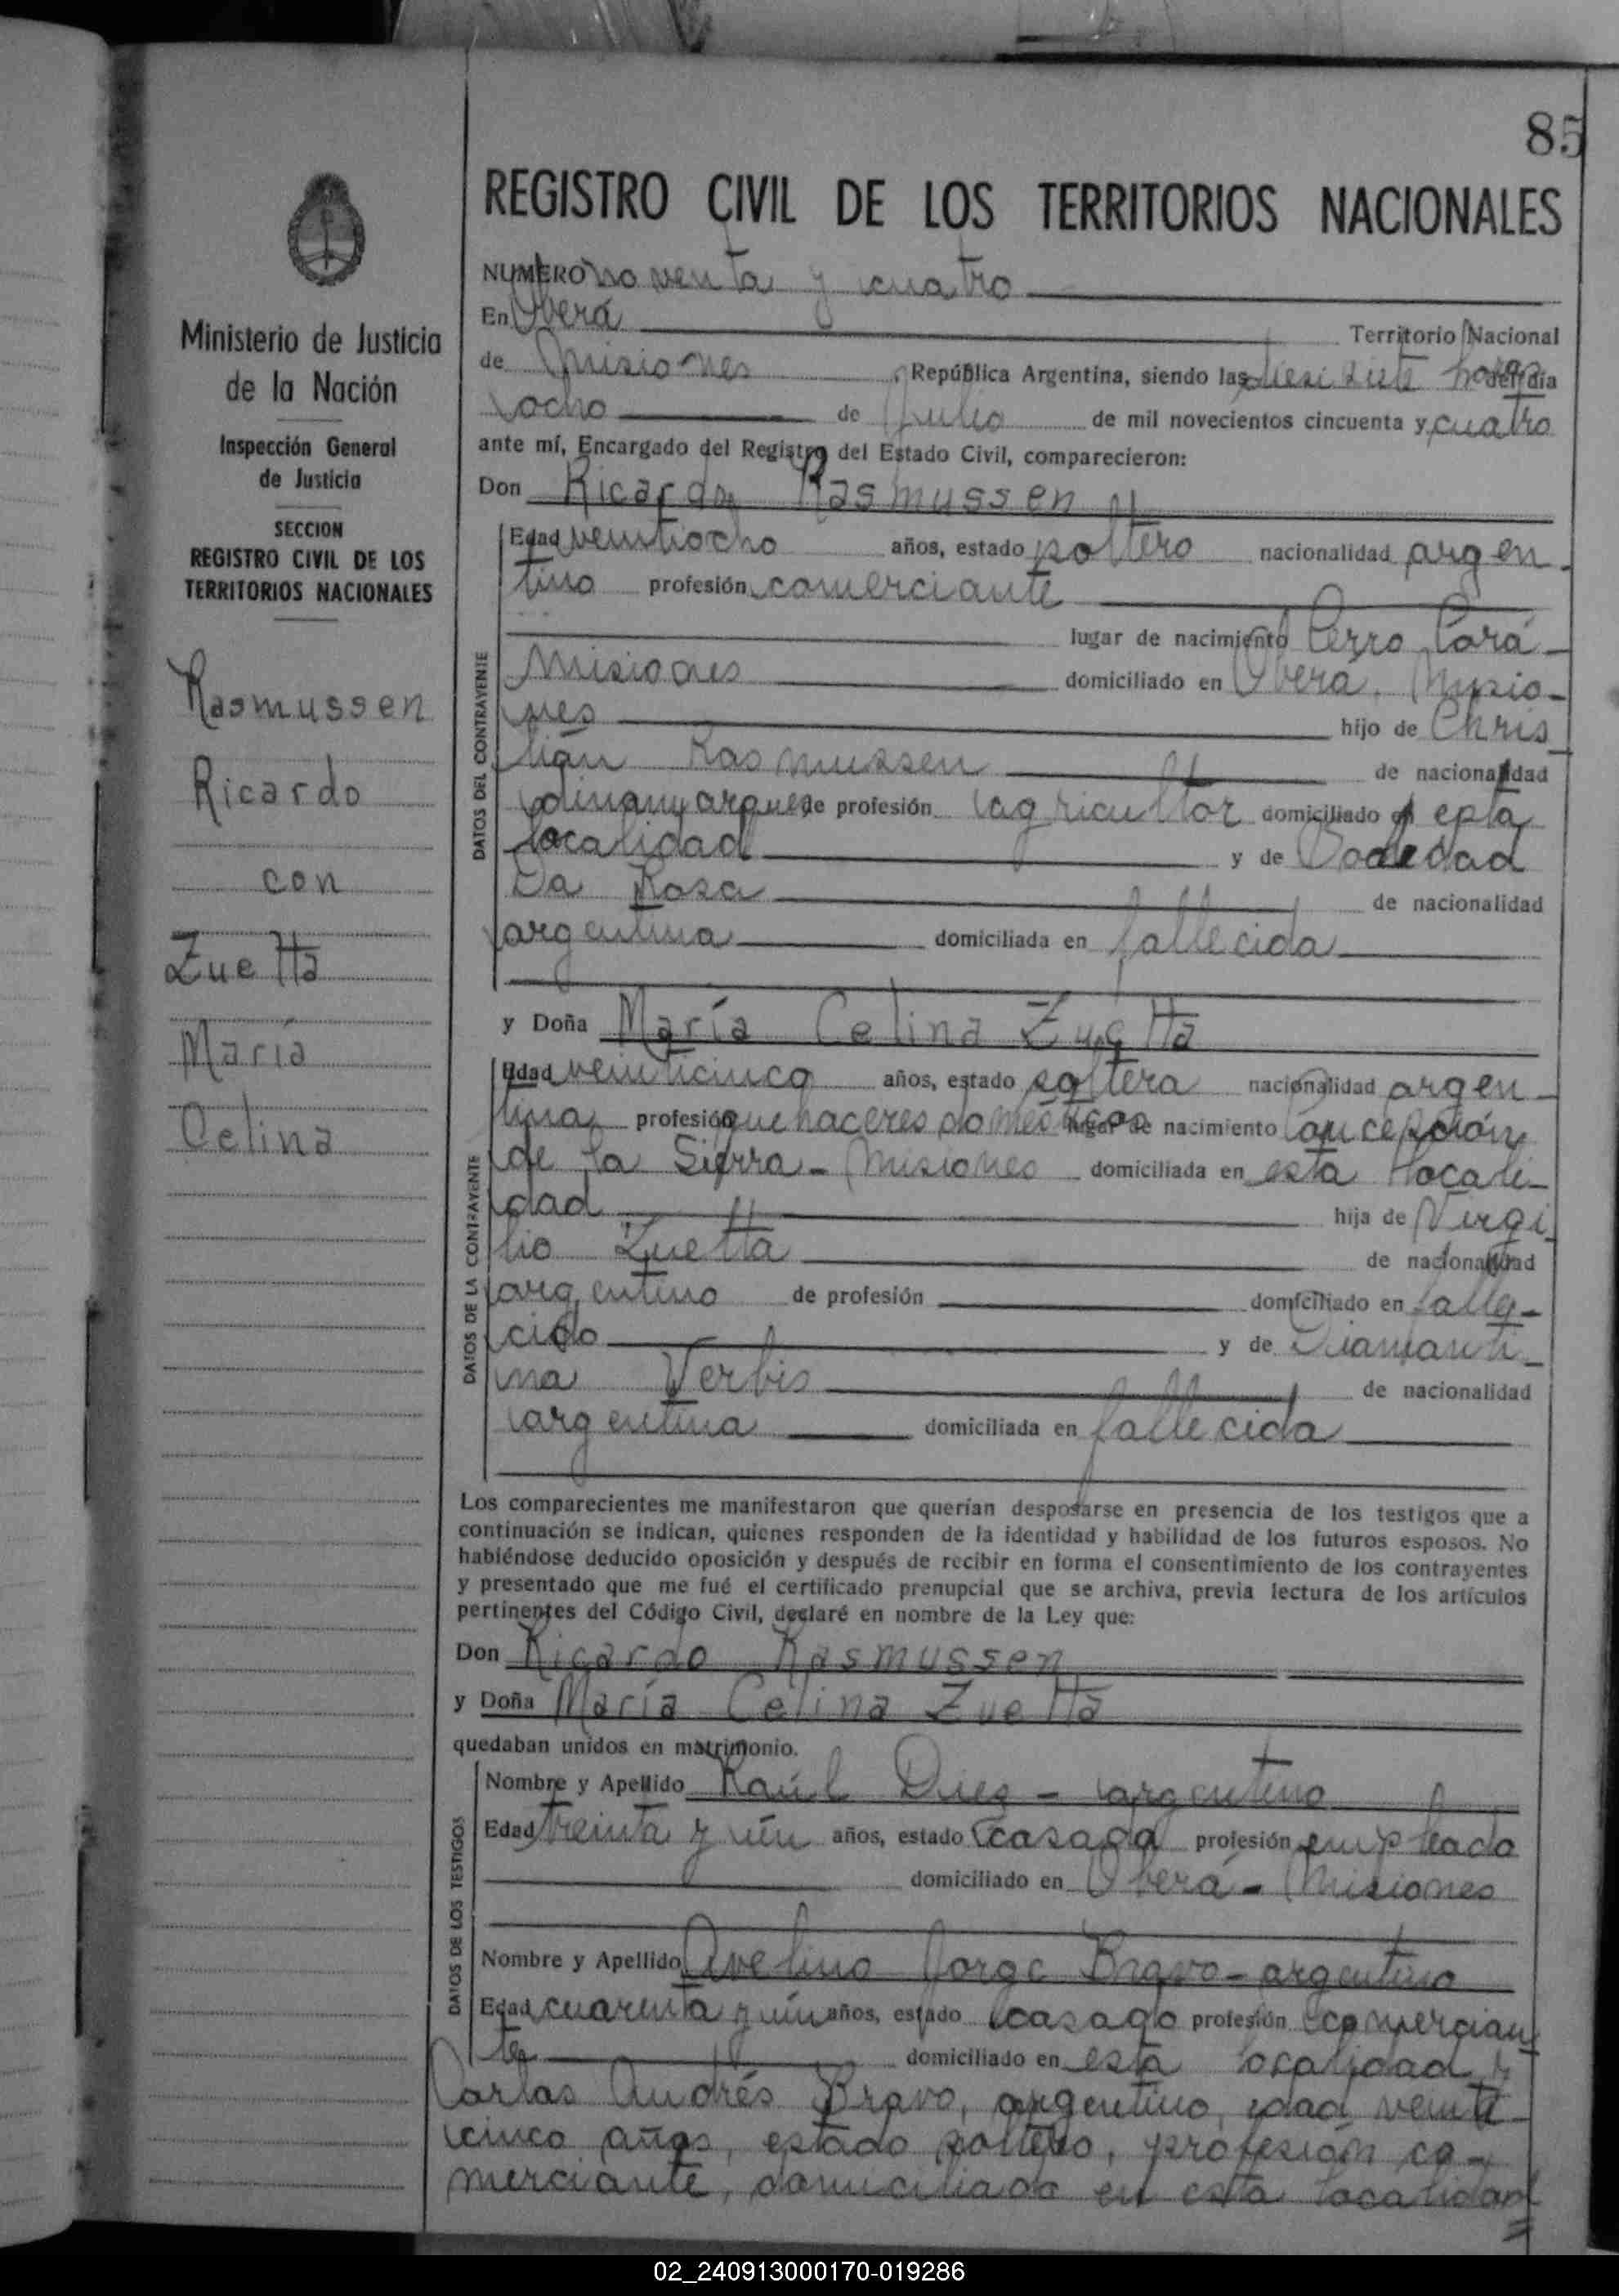 85
REGISTRO CIVIL DE LOS TERRITORIOS NACIONALES
Ministerio de Justicia
de la Nación
Inspección General
de Justicia
SECCION
REGISTRO CIVIL DE LOS
TERRITORIOS NACIONALES
Rasmussen
Ricardo
con
Zuetta
María
Celina
NUMERO noventa y cuatro
En Oberá Territorio Nacional
de Misiones, República Argentina, siendo las diesisiete horas del día
ocho de Julio de mil novecientos cincuenta y cuatro
ante mí, Encargado del Registro del Estado Civil, comparecieron:
Don Ricardo Rasmussen
DATOS DEL CONTRAYENTE
Edad veintiocho años, estado soltero nacionalidad argen-
tino profesión comerciante
lugar de nacimiento Cerro Corá-
Misiones domiciliado en Oberá, Misio-
nes hijo de Chris
tian Rasmussen de nacionalidad
dinamarques de profesión agricultor domiciliado en esta
localidad y de Soledad
Da Rosa de nacionalidad
argentina domiciliada en fallecida
y Doña María Celina Zuetta
DATOS DE LA CONTRAYENTE
Edad veinticinco años, estado soltera nacionalidad argen-
tina profesión quehaceres domésticos lugar de nacimiento Concepción
de la Sierra - Misiones domiciliada en esta locali-
dad hija de Virgi
lio Zuetta de nacionalidad
argentino de profesión domiciliado en falle-
cido y de Diamanti-
na Verbis de nacionalidad
argentina domiciliada en fallecida
Los comparecientes me manifestaron que querían desposarse en presencia de los testigos que a
continuación se indican, quienes responden de la identidad y habilidad de los futuros esposos. No
habiéndose deducido oposición y después de recibir en forma el consentimiento de los contrayentes
y presentado que me fué el certificado prenupcial que se archiva, previa lectura de los artículos
pertinentes del Código Civil, declaré en nombre de la Ley que:
Don Ricardo Rasmussen
y Doña María Celina Zuetta
quedaban unidos en matrimonio.
DATOS DE LOS TESTIGOS
Nombre y Apellido Raúl Diez - argentino
Edad treinta y un años, estado casado profesión empleado
domiciliado en Oberá - Misiones
Nombre y Apellido Avelino Jorge Bravo - argentino
Edad cuarenta y un años, estado casado profesión comercian
te domiciliado en esta localidad y
Carlos Andrés Bravo, argentino, edad veinti
cinco años, estado soltero, profesión co-
merciante, domiciliado en esta localidad
02_240913000170-019286